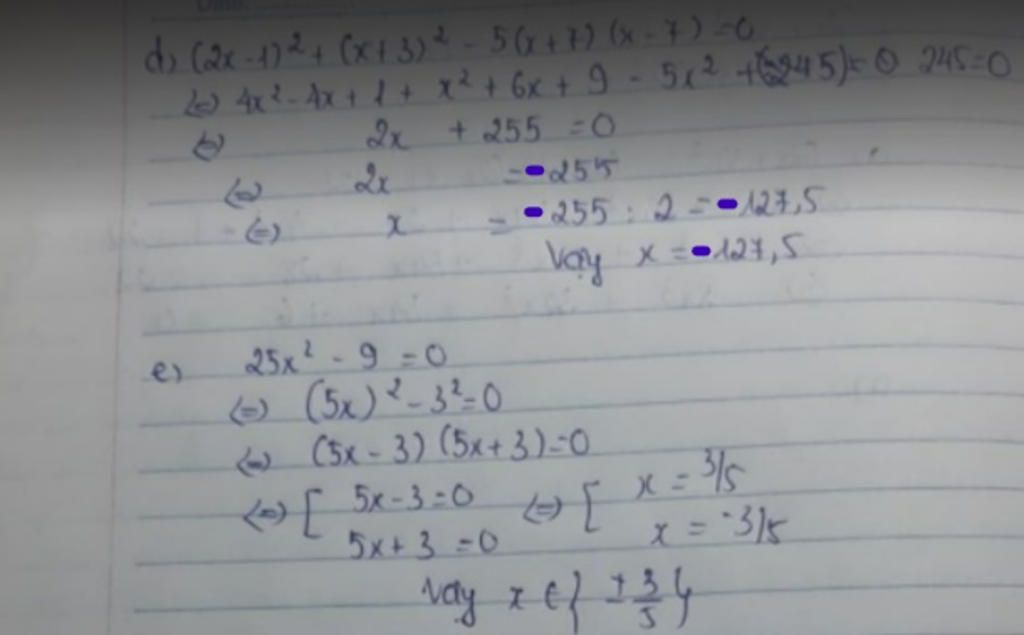 d) (2x-1)² + (x+3)² - 5(x+7)(x-7) = 0
<=> 4x² - 4x + 1 + x² + 6x + 9 - 5x² + 245 = 0 245 = 0
<=> 2x + 255 = 0
<=> 2x = -255
<=> x = -255 : 2 = -127,5
Vậy x = -127,5
e) 25x² - 9 = 0
<=> (5x)² - 3² = 0
<=> (5x - 3)(5x + 3) = 0
<=> [ 5x - 3 = 0 <=> [ x = 3/5
5x + 3 = 0 x = -3/5
Vậy x ∈ { ± 3/5 }